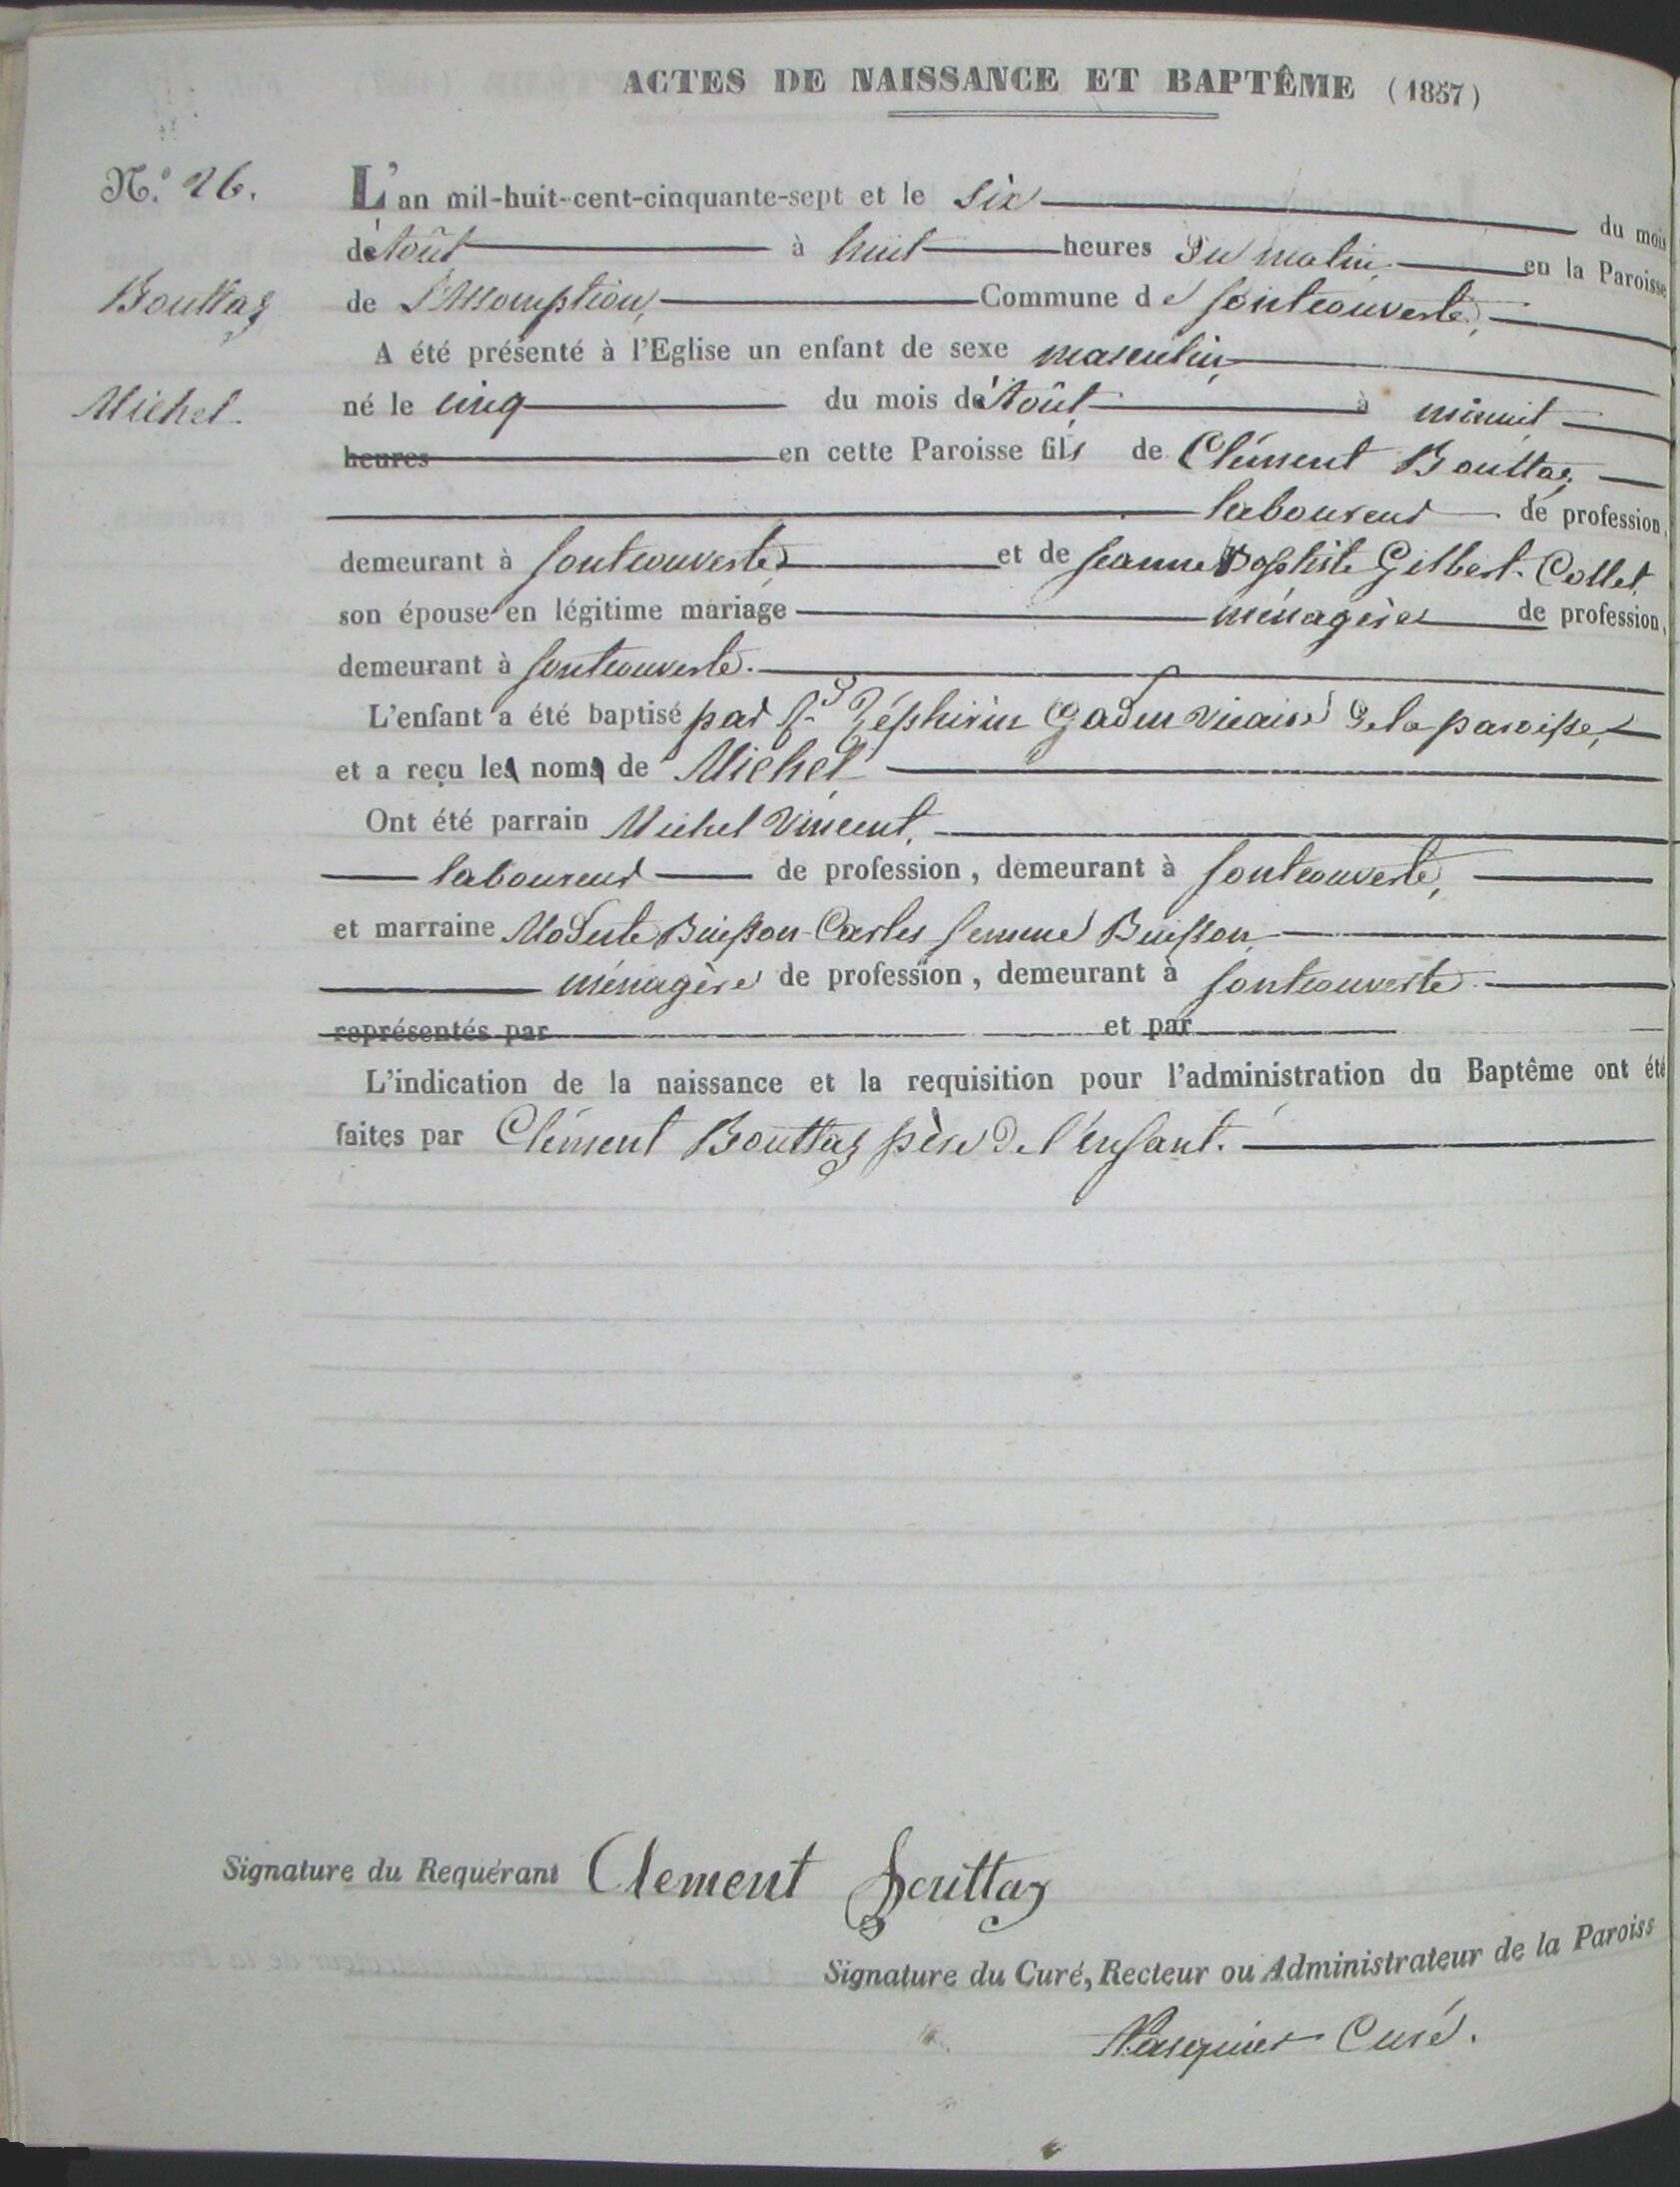 ACTES DE NAISSANCE ET BAPTÊME (1857)
N.° 26.
Bouttaz
Michel.
L'an mil-huit-cent-cinquante-sept et le six du mois
d'Août à huit heures du matin en la Paroisse
de l'Assomption, Commune de Fontcouverte,
A été présenté à l'Eglise un enfant de sexe masculin,
né le cinq du mois d'Août à minuit
heures en cette Paroisse fils de Clément Bouttaz,
laboureur de profession,
demeurant à Fontcouverte, et de Jeanne Baptiste Gilbert-Collet,
son épouse en légitime mariage ménagère de profession,
demeurant à Fontcouverte.
L'enfant a été baptisé par Zéphirin Gaden vicaire de la paroisse,
et a reçu les noms de Michel
Ont été parrain Michel Vincent,
laboureur de profession, demeurant à Fontcouverte,
et marraine Modeste Buisson-Carles femme Buisson,
ménagère de profession, demeurant à Fontcouverte.
représentés par et par
L'indication de la naissance et la requisition pour l'administration du Baptême ont été
faites par Clément Bouttaz père de l'enfant.
Signature du Requérant Clement Bouttaz
Signature du Curé, Recteur ou Administrateur de la Paroiss
Pasquier Curé.